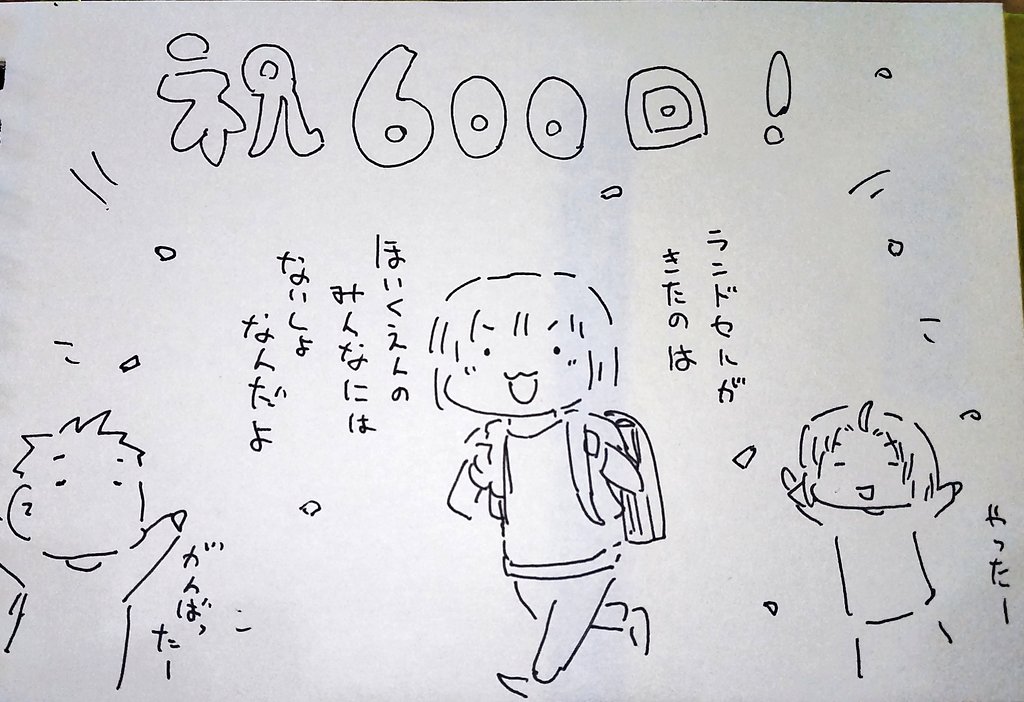 祝600回!
ランドセルが
きたのは
ほいくえんの
みんなには
ないしょ
なんだよ
がんばっ
たー
やったー